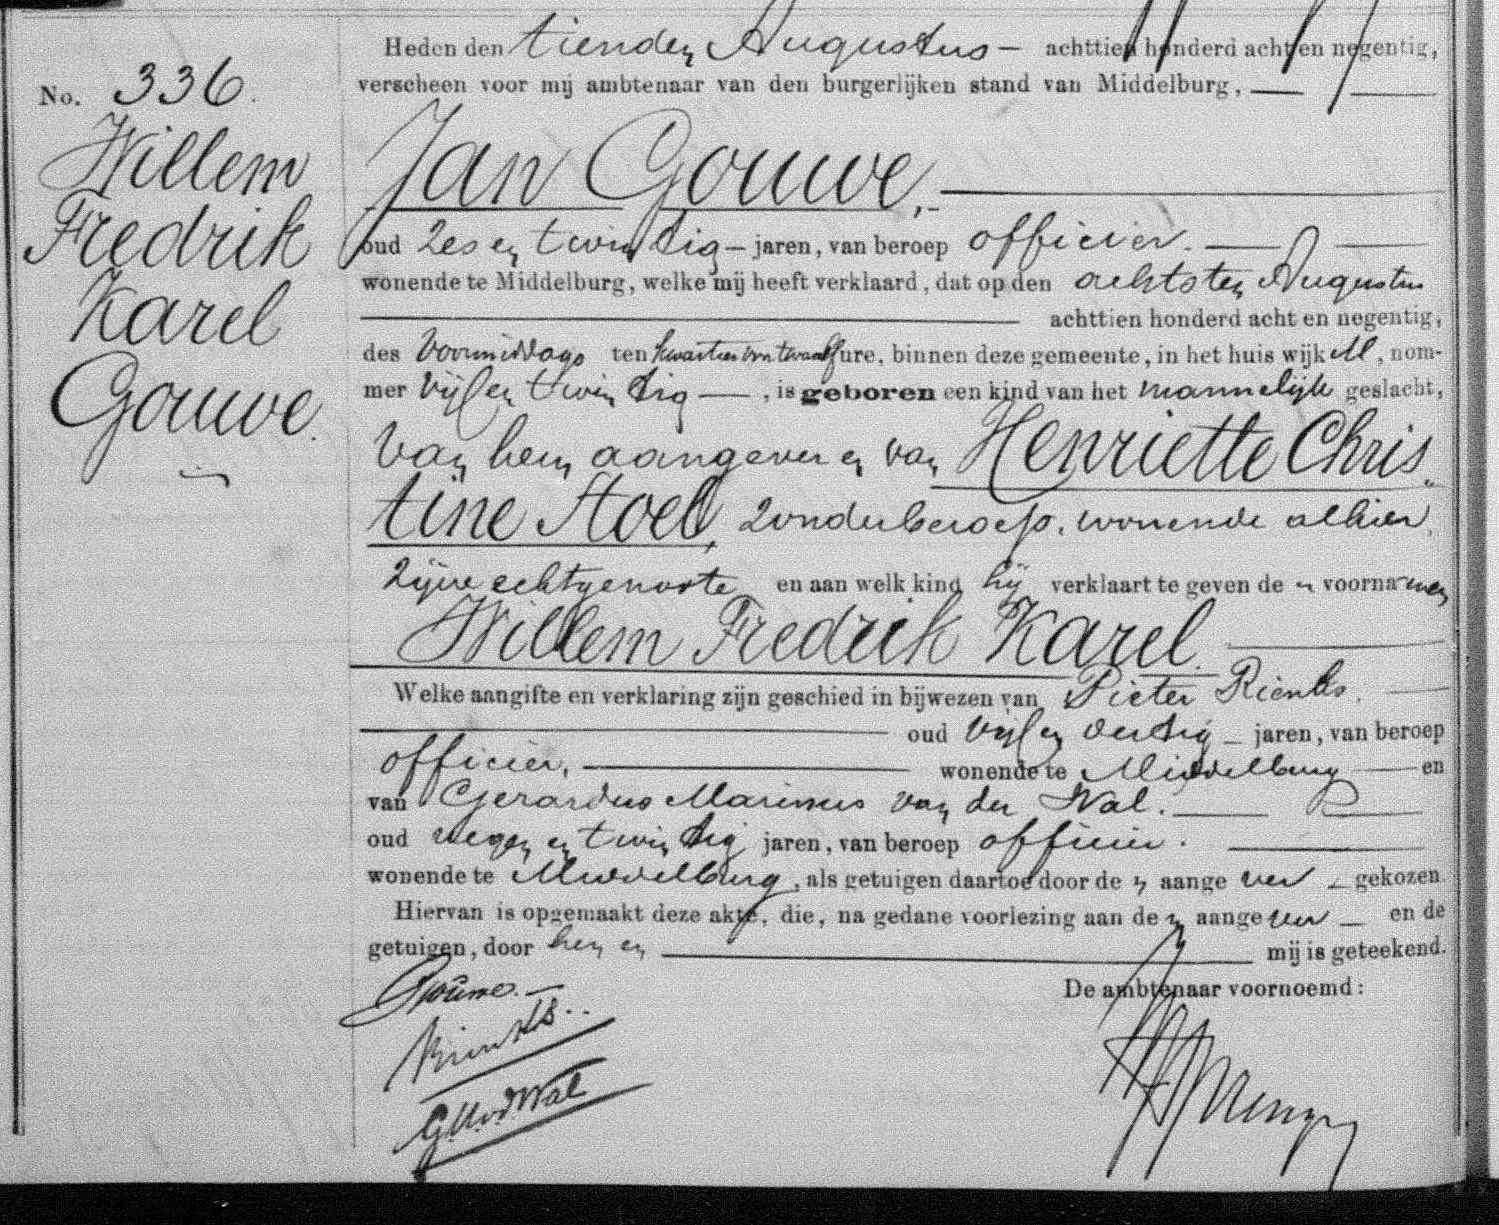 No. 336.
Willem
Fredrik
Karel
Gouwe.
Heden den tienden Augustus — achttien honderd acht en negentig,
verscheen voor mij ambtenaar van den burgerlijken stand van Middelburg,
Jan Gouwe,
oud zes en twintig — jaren, van beroep officier.
wonende te Middelburg, welke mij heeft verklaard, dat op den achtsten Augustus
achttien honderd acht en negentig,
des voormiddags ten kwartier voor twaalf ure, binnen deze gemeente, in het huis wijk M, nom-
mer vijf en twintig —, is geboren een kind van het mannelijk geslacht,
van hem aangever en van Henriette Chris
tine Stoel, zonder beroep, wonende alhier,
zijne echtgenoote en aan welk kind hij verklaart te geven de n voornamen
Willem Fredrik Karel.
Welke aangifte en verklaring zijn geschied in bijwezen van Pieter Rienks.
oud vijf en dertig — jaren, van beroep
officier, wonende te Middelburg — en
van Gerardus Marinus van der Wal.
oud negen en twintig jaren, van beroep officier.
wonende te Middelburg, als getuigen daartoe door de n aange ver — gekozen.
Hiervan is opgemaakt deze akte, die, na gedane voorlezing aan de n aange ver — en de
getuigen, door hen en mij is geteekend.
De ambtenaar voornoemd:
Gouwe. —
Rienks..
GMvdWal